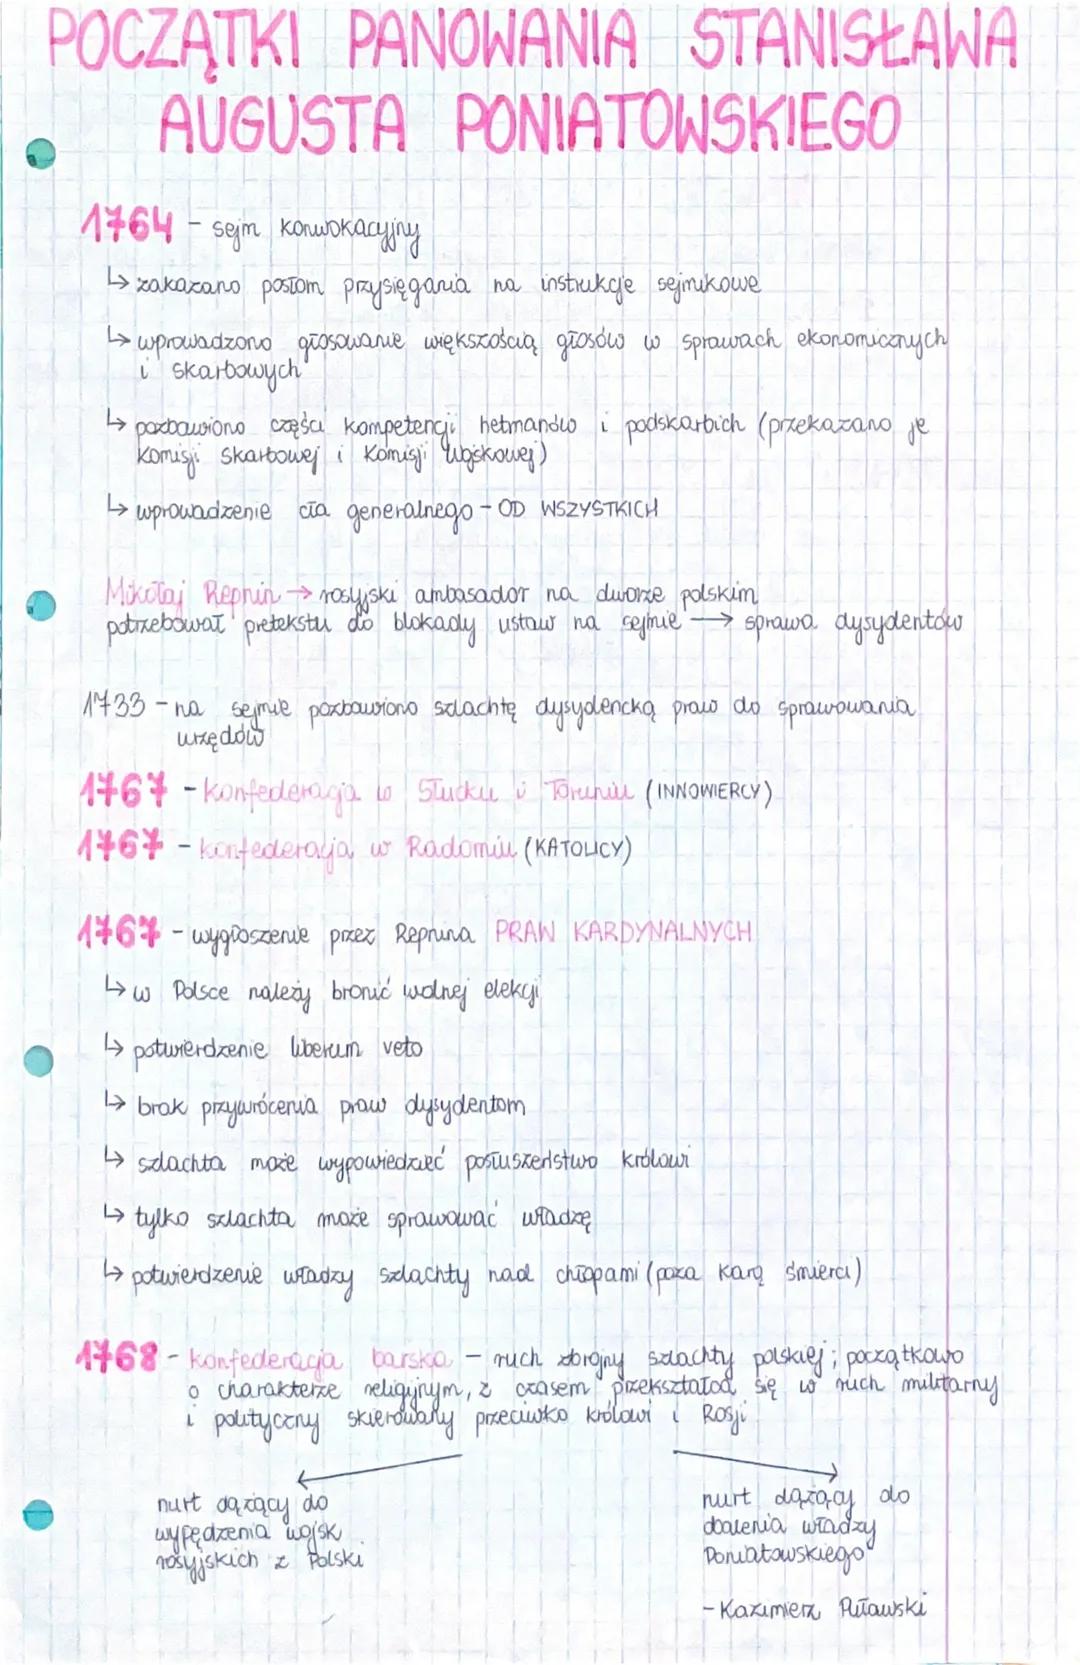 POCZĄTKI PANOWANIA STANISŁAWA
AUGUSTA PONIATOWSKIEGO
1764 - sejm konwokacyjny
↳ zakazano posłom przysięgania na instrukcje sejmikowe
↳ wprowadzono głosowanie większością głosów w sprawach ekonomicznych
i skarbowych
↳ pozbawiono części kompetencji hetmanów i podskarbich (przekazano je
Komisji Skarbowej i Komisji Wojskowej)
↳ wprowadzenie cła generalnego - OD WSZYSTKICH
Mikołaj Repnin → rosyjski ambasador na dworze polskim
potrzebował pretekstu do blokady ustaw na sejmie → sprawa dysydentów
1733 - na sejmie pozbawiono szlachtę dysydencką praw do sprawowania
urzędów
1767 - konfederacja w Słucku i Toruniu (INNOWIERCY)
1767 - konfederacja w Radomiu (KATOLICY)
1767 - wygłoszenie przez Repnina PRAW KARDYNALNYCH
↳ w Polsce należy bronić wolnej elekcji
↳ potwierdzenie liberum veto
↳ brak przywrócenia praw dysydentom
↳ szlachta może wypowiedzieć posłuszeństwo królowi
↳ tylko szlachta może sprawować władzę
↳ potwierdzenie władzy szlachty nad chłopami (poza karą śmierci)
1768 - konfederacja barska - ruch zbrojny szlachty polskiej; początkowo
o charakterze religijnym, z czasem przekształcą się w ruch militarny
i polityczny skierowany przeciwko królowi i Rosji
nurt dążący do
wypędzenia wojsk
rosyjskich z Polski
nurt dążący do
obalenia władzy
Poniatowskiego
- Kazimierz Puławski